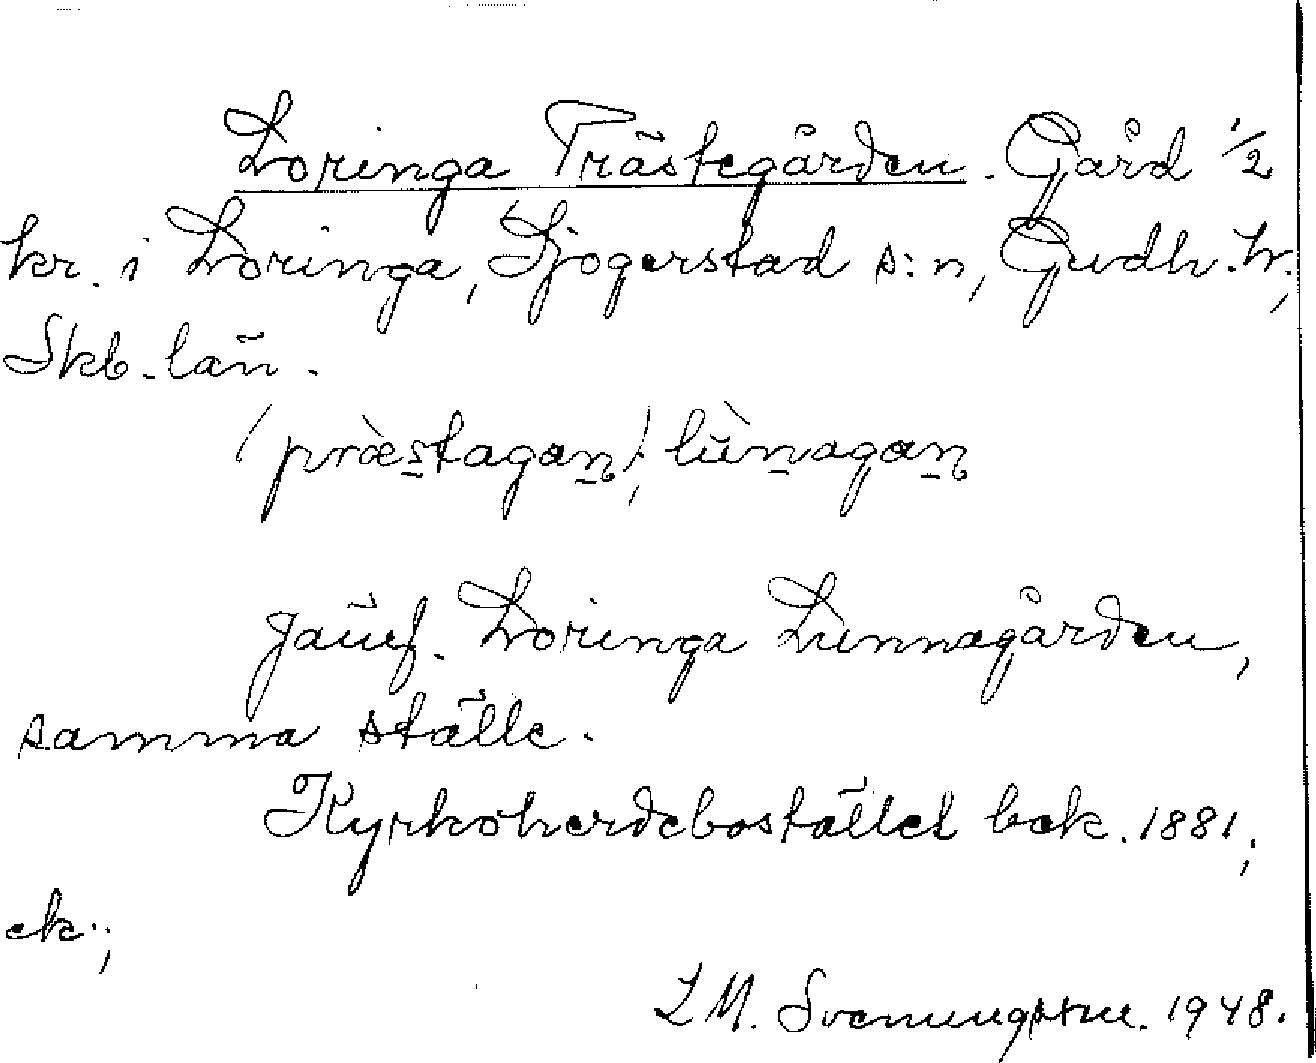 Loringa Prästegården. Gård 1/2
kr. i Loringa, Sjogerstad s:n, Gudh. hr,
Skb. län.
(præstagan), lùnagan
jämf. Loringa Lunnagården,
samma ställe.
Kyrkoherdebostället bok. 1881;
ek.;
L M. Svenungsson. 1948.